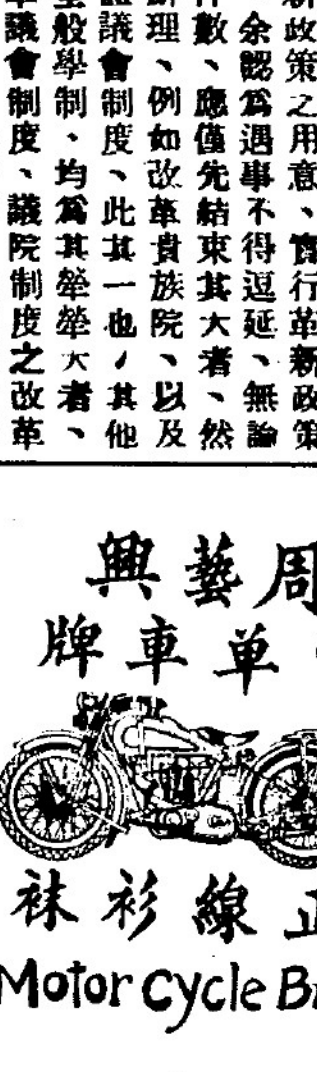 政策之用意、實行革新政策
余認爲遇事不得逗延、無論
數、應僅先結束其大者、然
理、例如改革貴族院、以及
議會制度、此其一也、其他
般學制、均爲其犖犖大者、
議會制度、議院制度之改革
周藝興
单車牌
線衫袜
Motor cycle